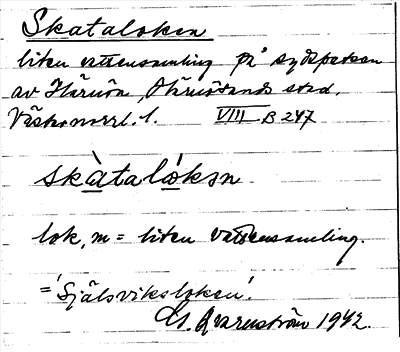 Skataloken
liten vattensamling på sydspetsen
av Härnön, Härnösands stad.
Västernorrl. l. VIII B 247
skàtalókən
lok, m = liten vattensamling.
= 'Själsviksloken'.
G. Qvarnström 1942.